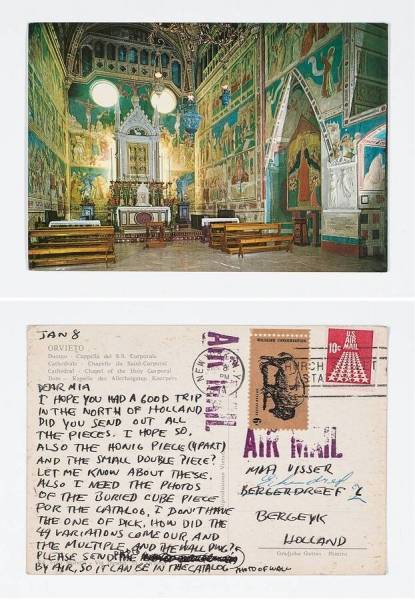 JAN 8
ORVIETO
Duomo - Cappella del S.S. Corporale
Cathédrale - Chapelle du Saint-Corporal
Cathedral - Chapel of the Holy Corporal
Dom - Kapelle des
DEAR MIA
I HOPE YOU HAD A GOOD TRIP
IN THE NORTH OF HOLLAND
DID YOU SEND OUT ALL
THE PIECES. I HOPE SO.
ALSO THE HONIG PIECE (4 PART)
AND THE SMALL DOUBLE PIECE?
LET ME KNOW ABOUT THESE.
ALSO I NEED THE PHOTOS
OF THE BURIED CUBE PIECE
FOR THE CATALOG, I DON'T HAVE
THE ONE OF DICK, HOW DID THE
49 VARIATIONS COME OUR, AND
THE MULTIPLE, AND THE WALL DWG?
PLEASE SEND THE
BY AIR, SO IT CAN BE IN THE CATALOG
PHOTO OF WALL
AIR MAIL
NEW YORK
PM
WILDLIFE CONSERVATION
6
U.S.
AIR MAIL
10c
AIR MAIL
MIA VISSER
BERGERDREEF 2
BERGEYK
HOLLAND